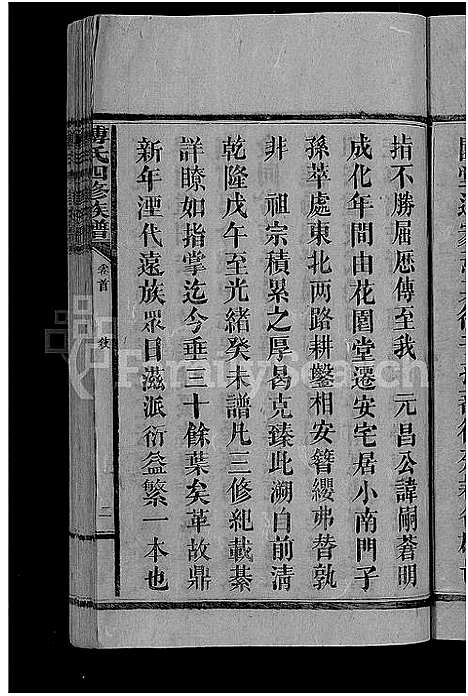 指不勝屈歷傳至我　元昌公諱嗣蒼明
成化年間由花園堂遷安宅居小南門子
孫萃處東北兩路耕鑿相安簪纓弗替孰
非　祖宗積累之厚曷克臻此溯自前清
乾隆戊午至光緒癸未譜凡三修紀載綦
詳瞭如指掌迄今垂三十餘葉矣革故鼎
新年湮代遠族眾日滋派衍益繁一本也
氏四修族譜
卷首
二
FamilySearch